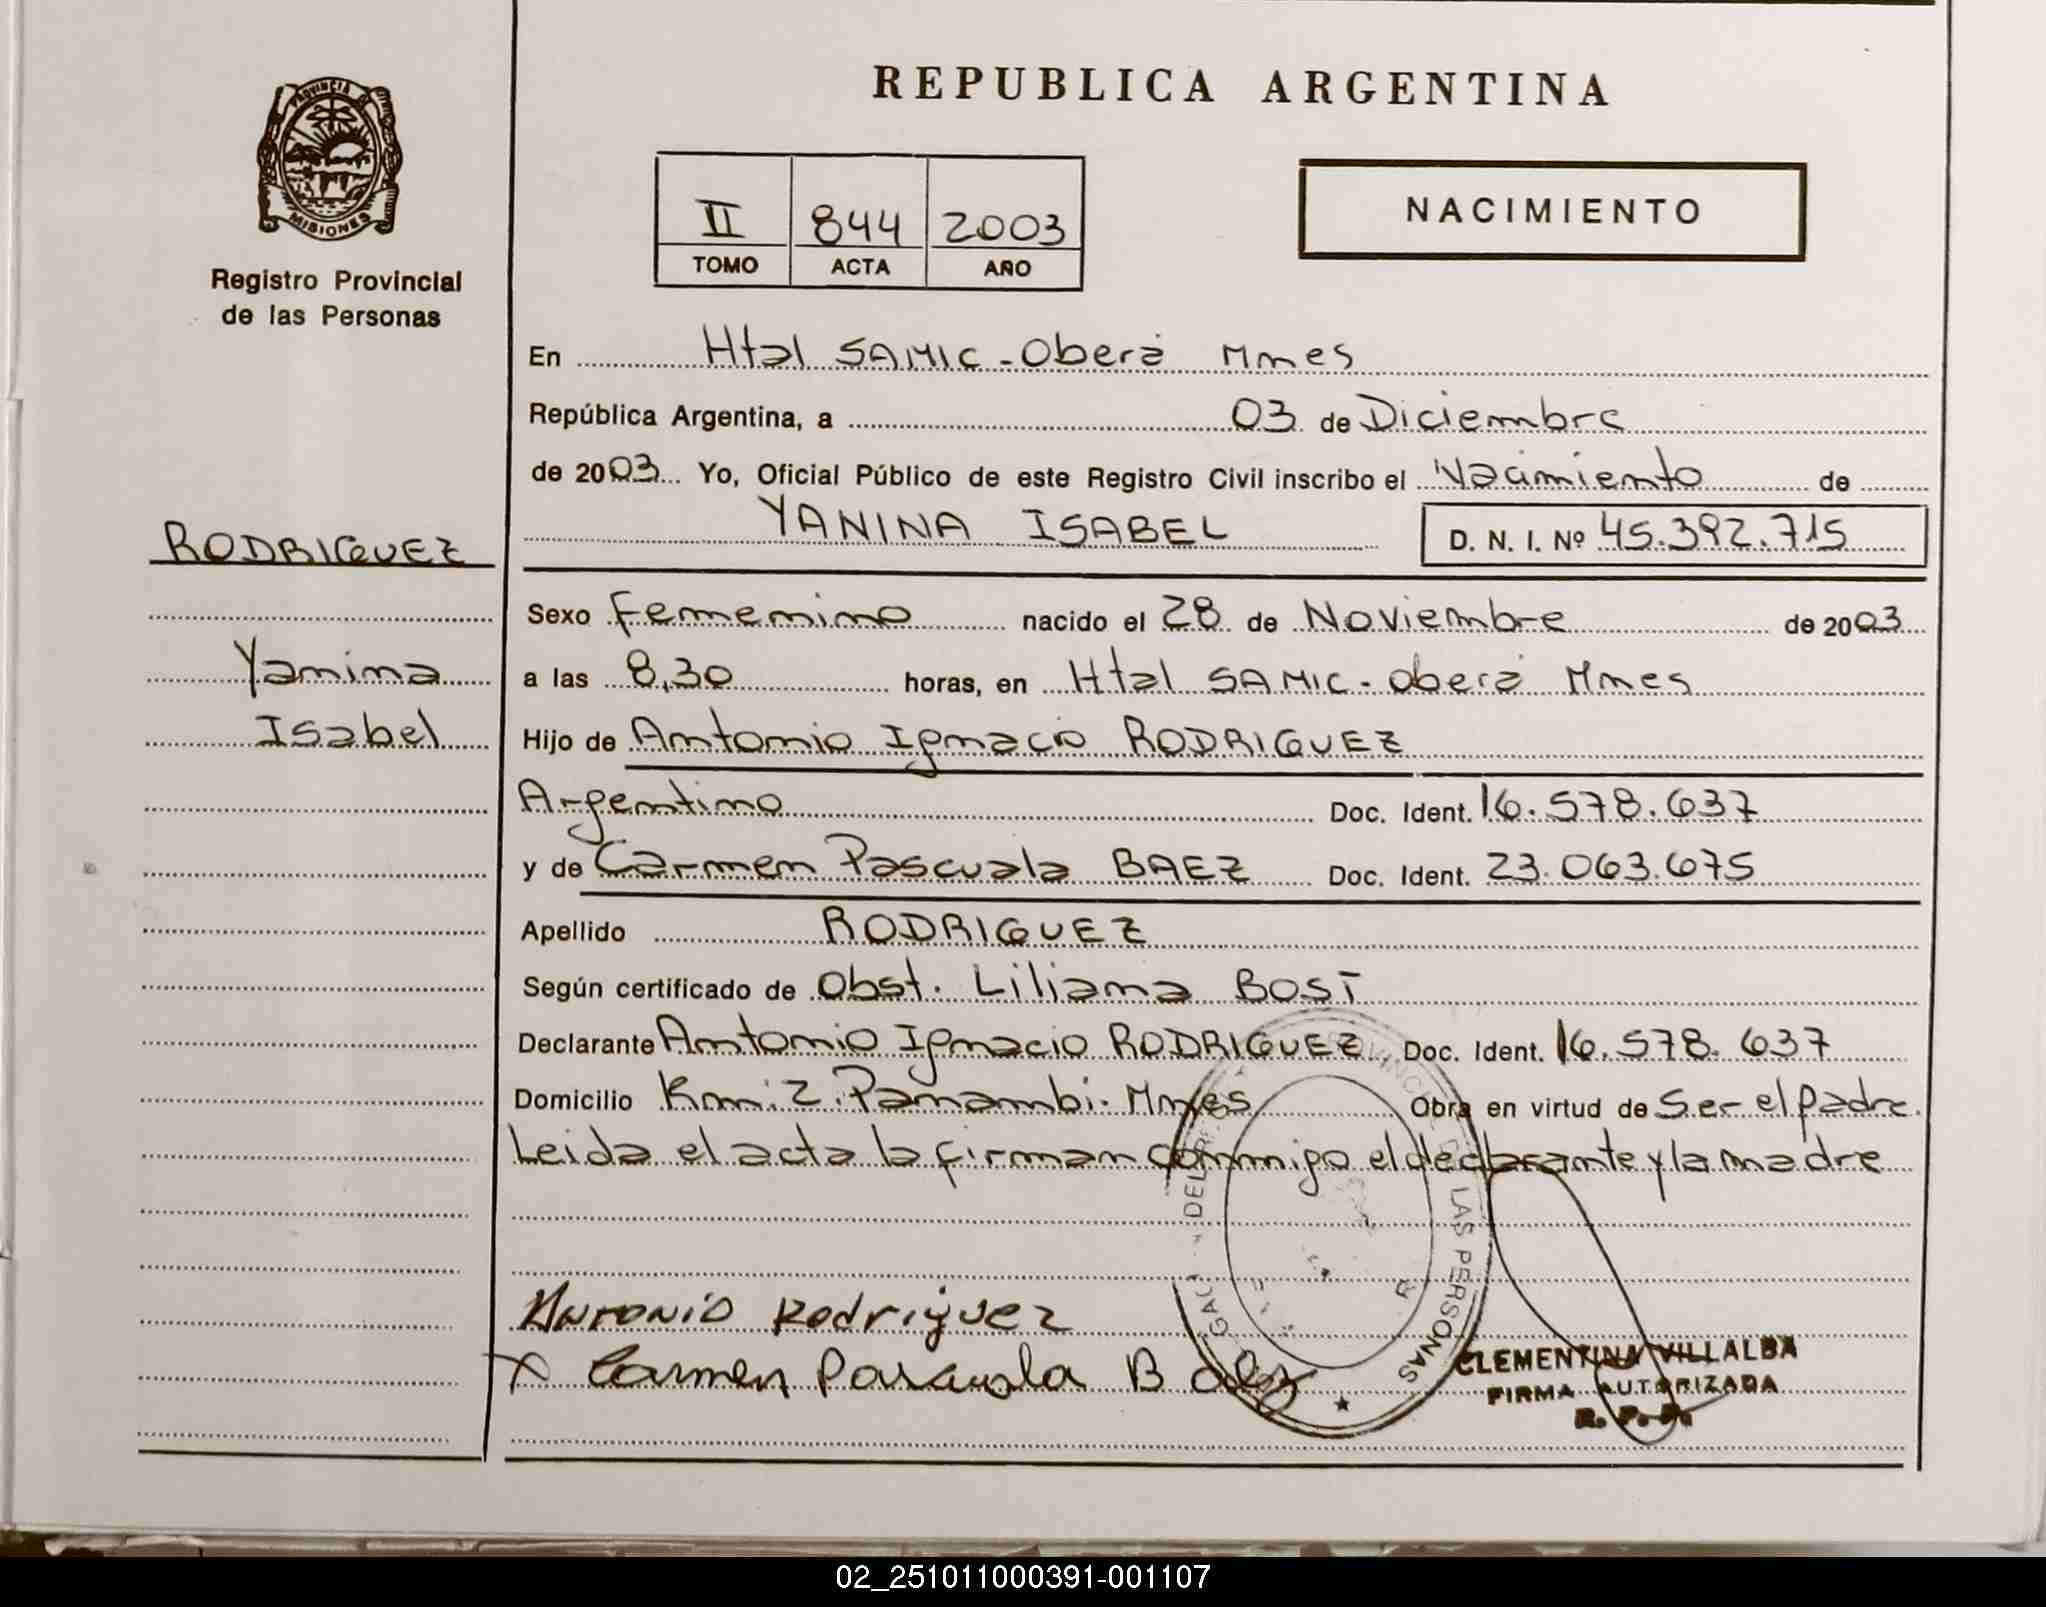 REPUBLICA ARGENTINA
PROVINCIA DE
MISIONES
Registro Provincial
de las Personas
II 844 2003
TOMO ACTA AÑO
NACIMIENTO
En Htal SAMIC - Oberá Mnes
República Argentina, a 03 de Diciembre
de 2003 Yo, Oficial Público de este Registro Civil inscribo el Nacimiento de
YANINA ISABEL D. N. I. Nº 45.392.715
RODRIGUEZ
Yanina
Isabel
Sexo Femenino nacido el 28 de Noviembre de 2003
a las 8,30 horas, en Htal SAMIC - Oberá Mnes
Hijo de Antonio Ignacio RODRIGUEZ
Argentino Doc. Ident. 16.578.637
y de Carmen Pascuala BAEZ Doc. Ident. 23.063.675
Apellido RODRIGUEZ
Según certificado de Obst. Liliana BOST
Declarante Antonio Ignacio RODRIGUEZ Doc. Ident. 16.578.637
Domicilio Km: 2. Panambi. Mnes Obra en virtud de Ser el padre.
Leida el acta la firman conmigo el declarante y la madre
Antonio Rodriguez
X Carmen Pascuala Baez
LAS PERSONAS
CLEMENTINA VILLALBA
FIRMA AUTORIZADA
R. P. P.
02_251011000391-001107